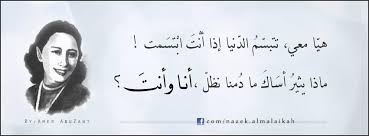 هيّا معي، تتبسّمُ الدّنيا إذا أنتَ ابْتَسَمت !
ماذا يثيرُ أساكَ ما دُمنا نظلّ ، أنا وأنتَ ؟
BY:AMER ABUZANT
com/nazek.almalaikah